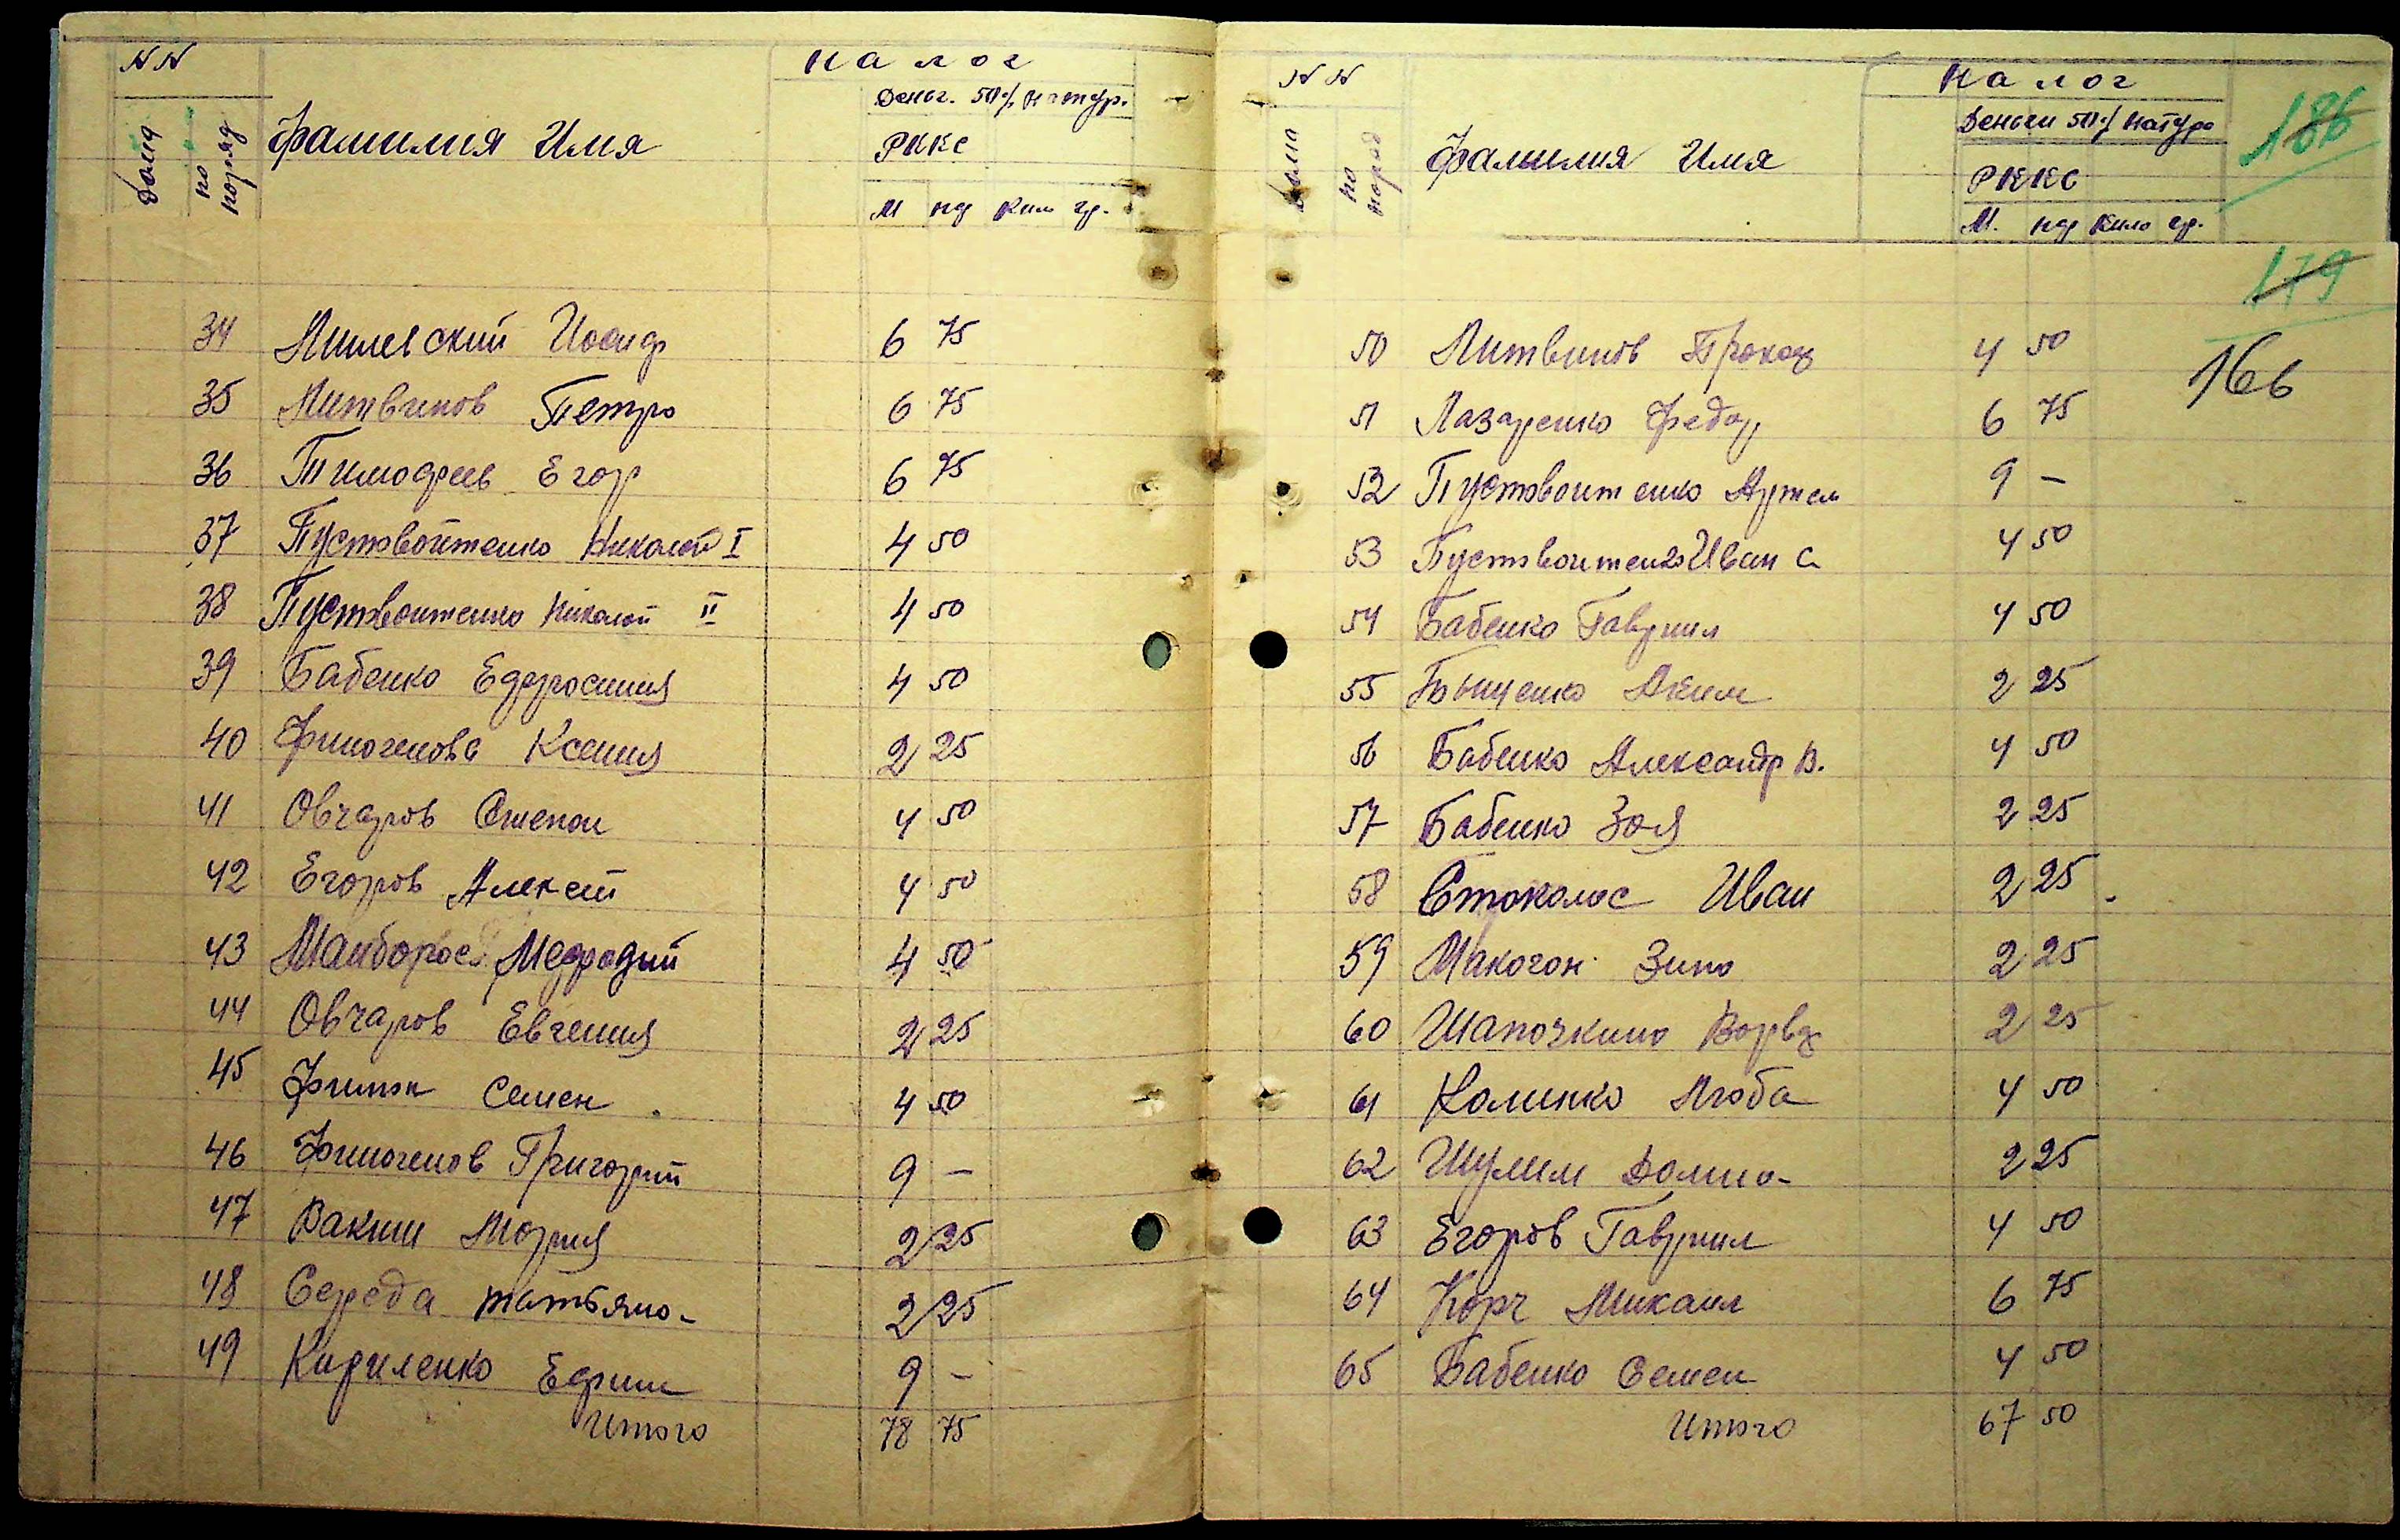 NN
Дома
по поряд
Фамилия Имя
налог
Деньг. 50% натур.
РККС
М пф кил гр.
34 Милевский Иосиф 6 75
35 Литвинов Петро 6 75
36 Тимофеев Егор 6 75
37 Пустовойтенко Николай I 4 50
38 Пустовоитенко Николай II 4 50
39 Бабенко Ефросиния 4 50
40 Финогенова Ксения 2 25
41 Овчаров Степан 4 50
42 Егоров Алексей 4 50
43 Маиборода Мефодий 4 50
44 Овчаров Евгения 2 25
45 Финок Семен 4 50
46 Финогенов Григорий 9 –
47 Вакии Мария 2 25
48 Середа Татьяна 2 25
49 Кириленко Ефим 9 –
Итого 78 75
NN
Дома
по поряд
Фамилия Имя
налог
Деньги 50% натура
РККС
М. пф кило гр.
186
179
166
50 Литвинов Прокоф 4 50
51 Лазаренко Федор 6 75
52 Пустовоитенко Артем 9 –
53 Пустовоитенко Иван С 4 50
54 Бабенко Гавриил 4 50
55 Аким 2 25
56 Бабенко Александр В. 4 50
57 Бабенко Зоя 2 25
58 Стоколос Иван 2 25
59 Макогон Зина 2 25
60 Шапочкина Варва 2 25
61 Калинко Люба 4 50
62 Шулим Домна 2 25
63 Егоров Гавриил 4 50
64 Корч Микаил 6 75
65 Бабенко Семен 4 50
Итого 67 50